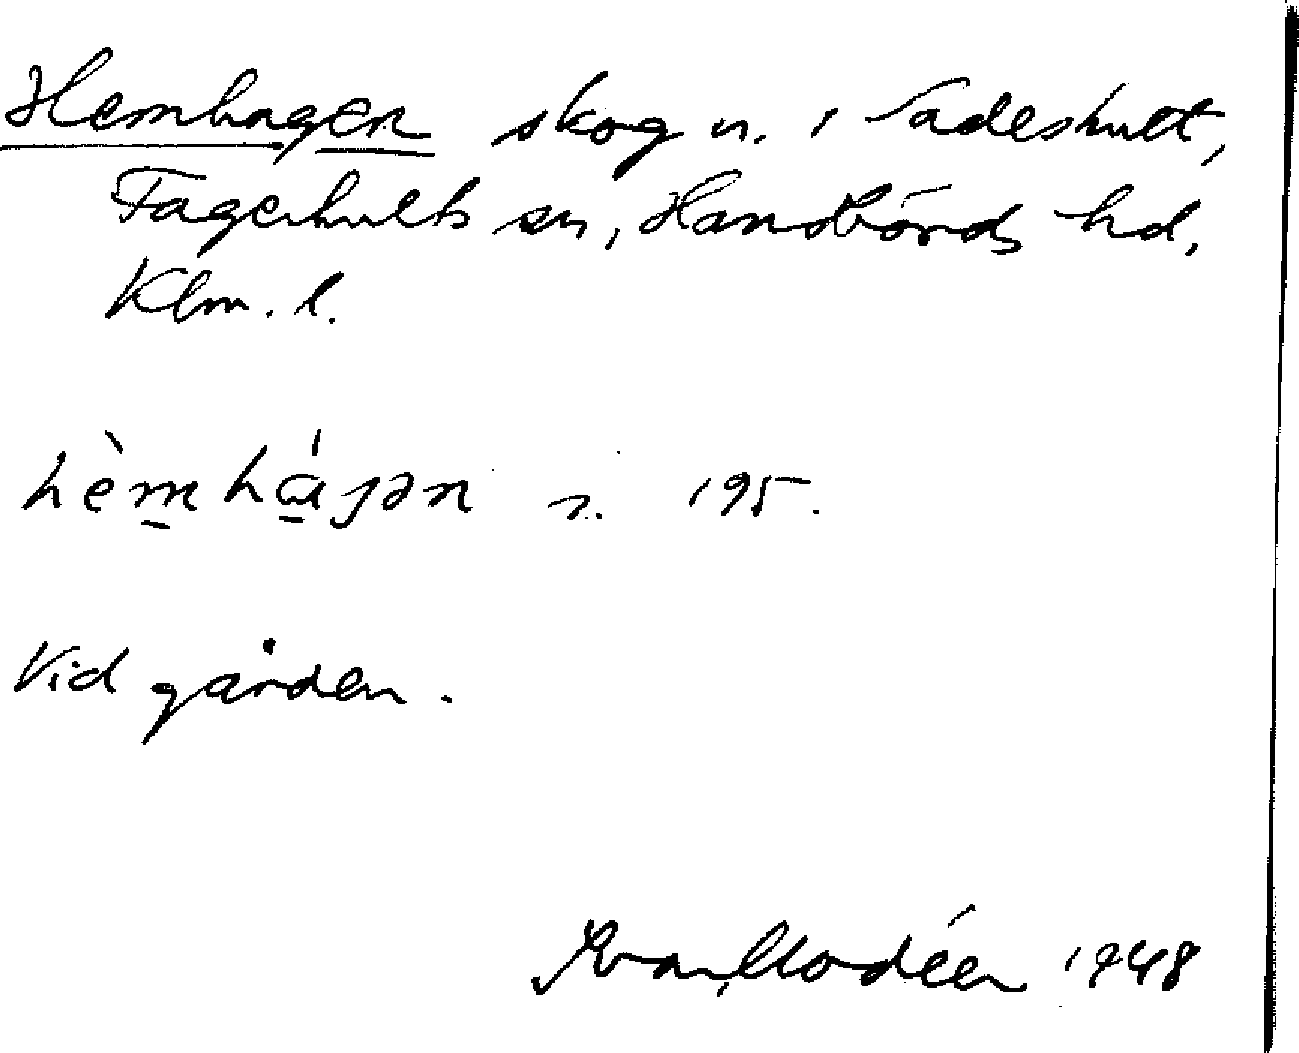 Hemhagen skog n. i Sadeshult,
Fagerhults sn, Handbörds hd,
Klm. l.
hèmhájən n. 195.
Vid gården.
Ivar Modéer 1948